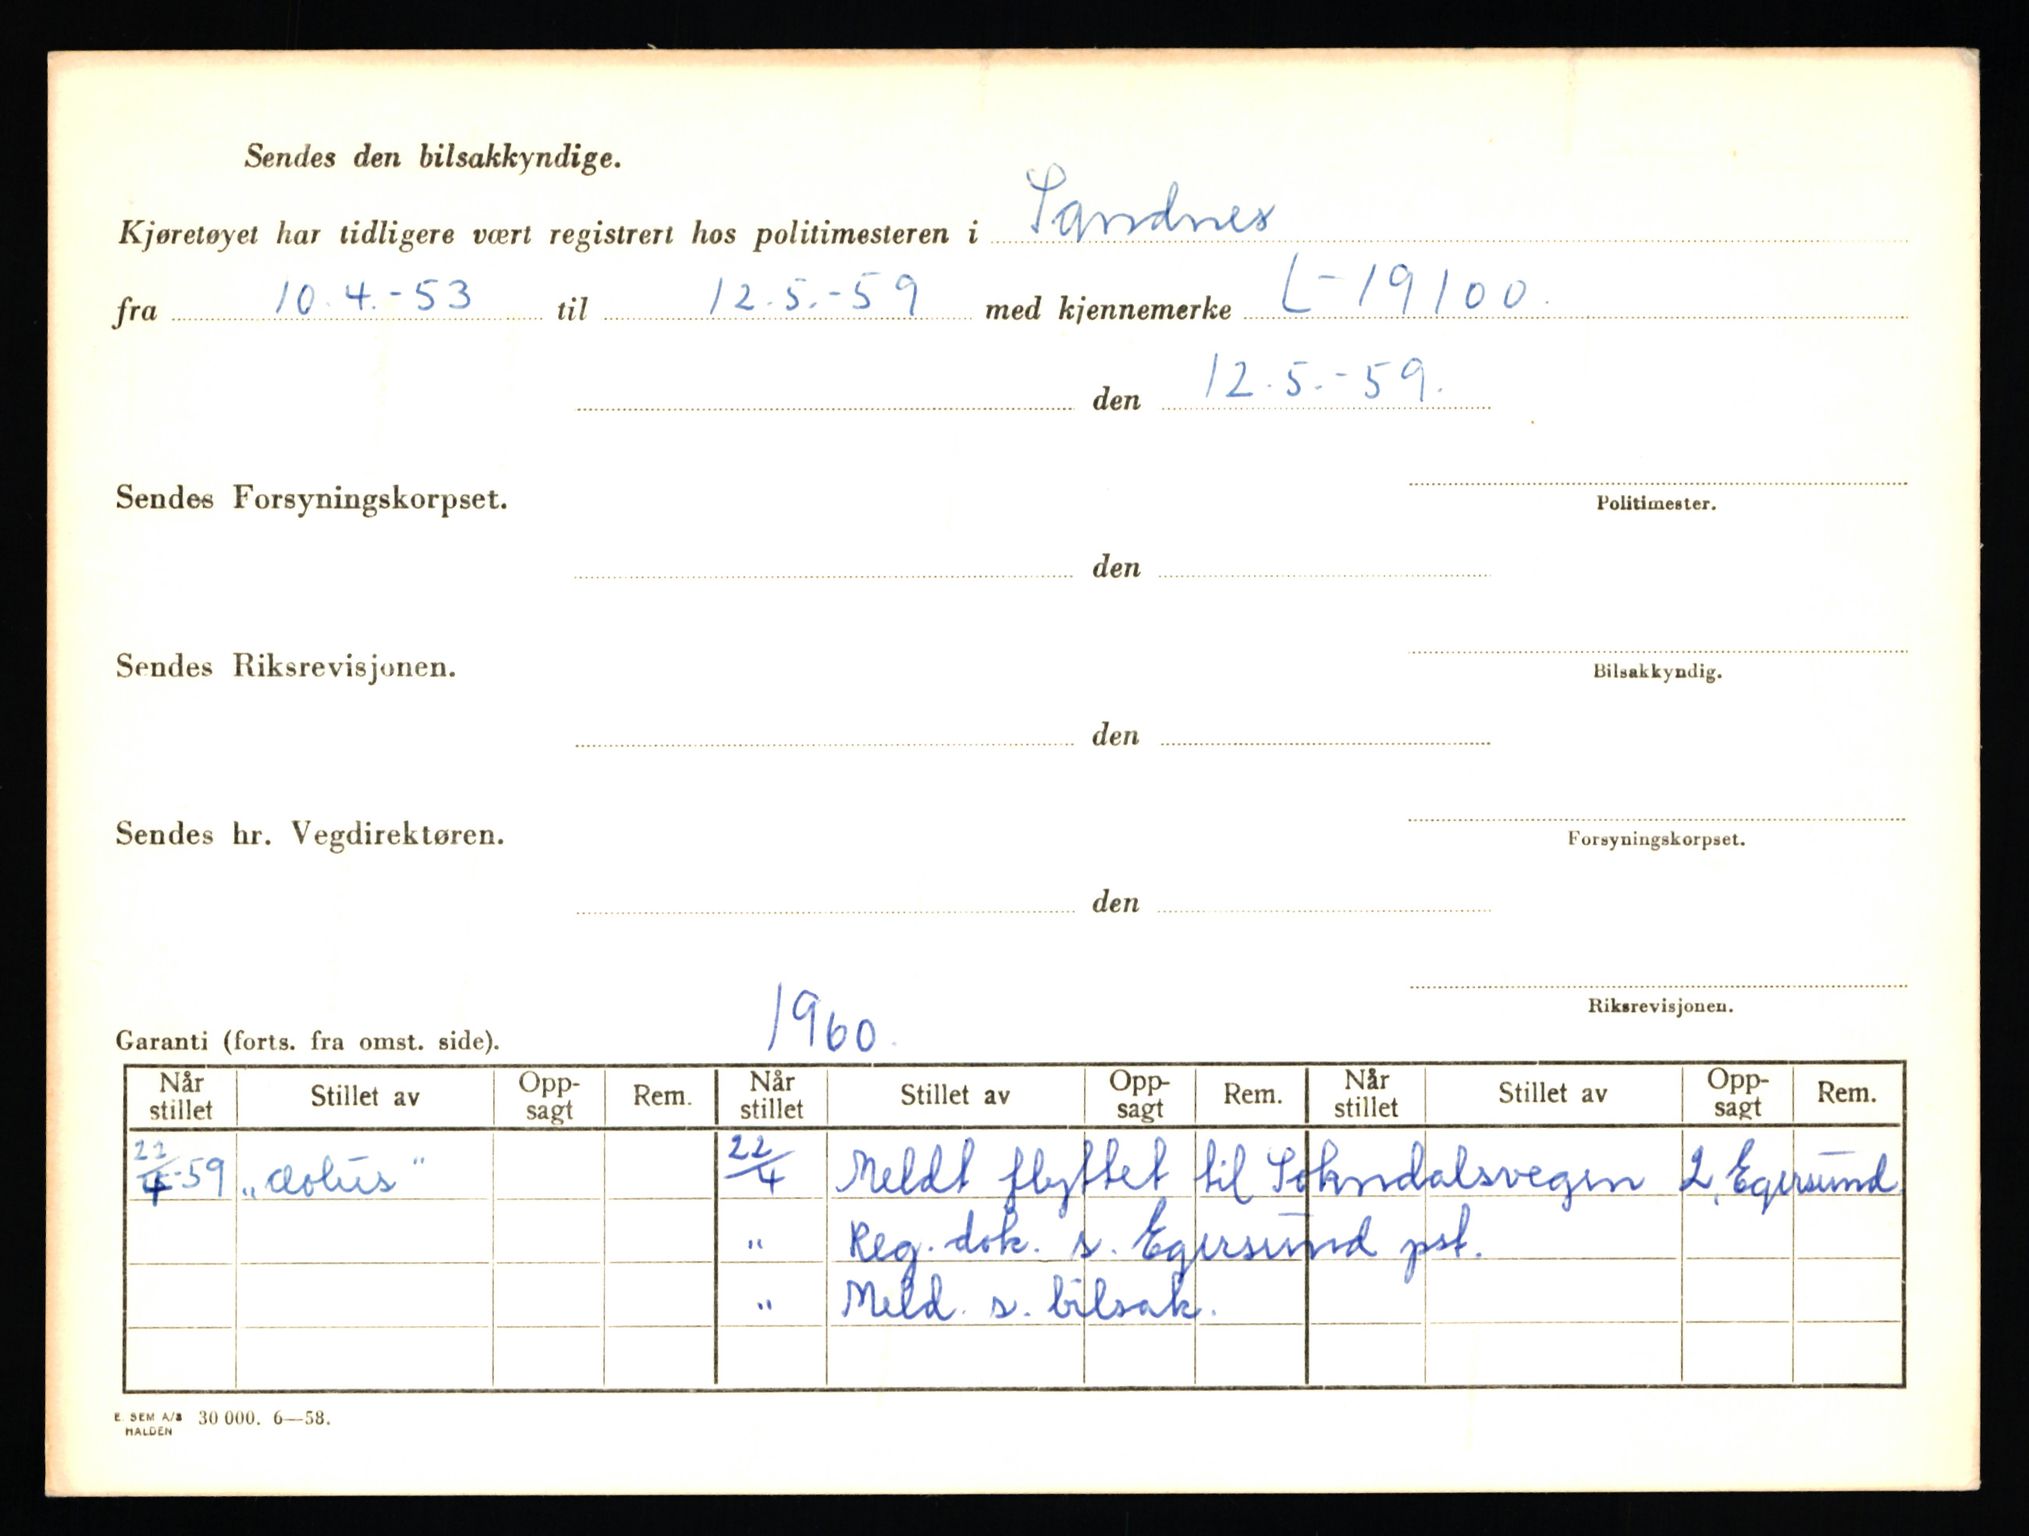 Sendes den bilsakkyndige.
Kjøretøyet har tidligere vært registrert hos politimesteren i Sandnes
fra 10.4.-53 til 12.5.-59 med kjennemerke L-19100.
den 12.5.-59.
Sendes Forsyningskorpset.
Politimester.
den
Sendes Riksrevisjonen.
Bilsakkyndig.
den
Sendes hr. Vegdirektøren.
Forsyningskorpset.
den
Riksrevisjonen.
Garanti (forts. fra omst. side). 1960.
Når stillet Stillet av Opp-sagt Rem. Når stillet Stillet av Opp-sagt Rem. Når stillet Stillet av Opp-sagt Rem.
22/4-59 „Æolus" 22/4 Meldt flyttet til Sokndalsvegen 2, Egersund.
" Reg. dok. s. Egersund pst.
" Meld. s. bilsak.
E. SEM A/S 30 000. 6—58.
HALDEN